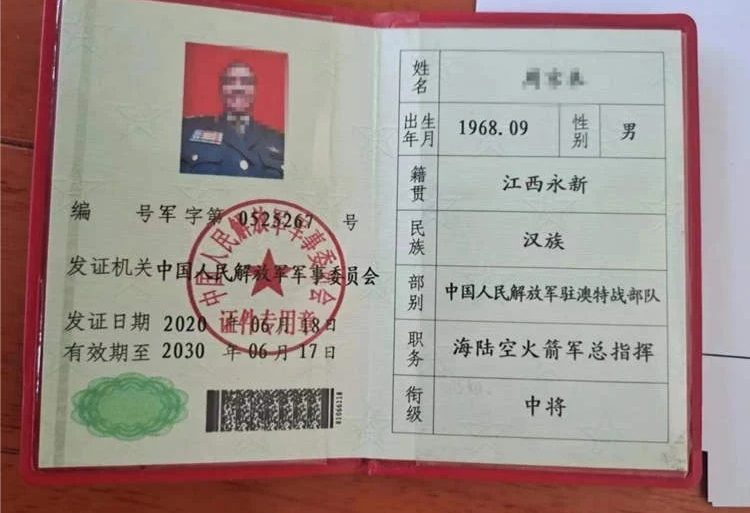 编 号军 字第 0525267 号
发证机关 中国人民解放军军事委员会
发证日期 2020 年 06 月 18 日
有效期至 2030 年 06 月 17 日
中国人民解放军军事委员会
证件专用章
81066118
姓名
出生年月 1968.09 性别 男
籍贯 江西永新
民族 汉族
部别 中国人民解放军驻澳特战部队
职务 海陆空火箭军总指挥
衔级 中将